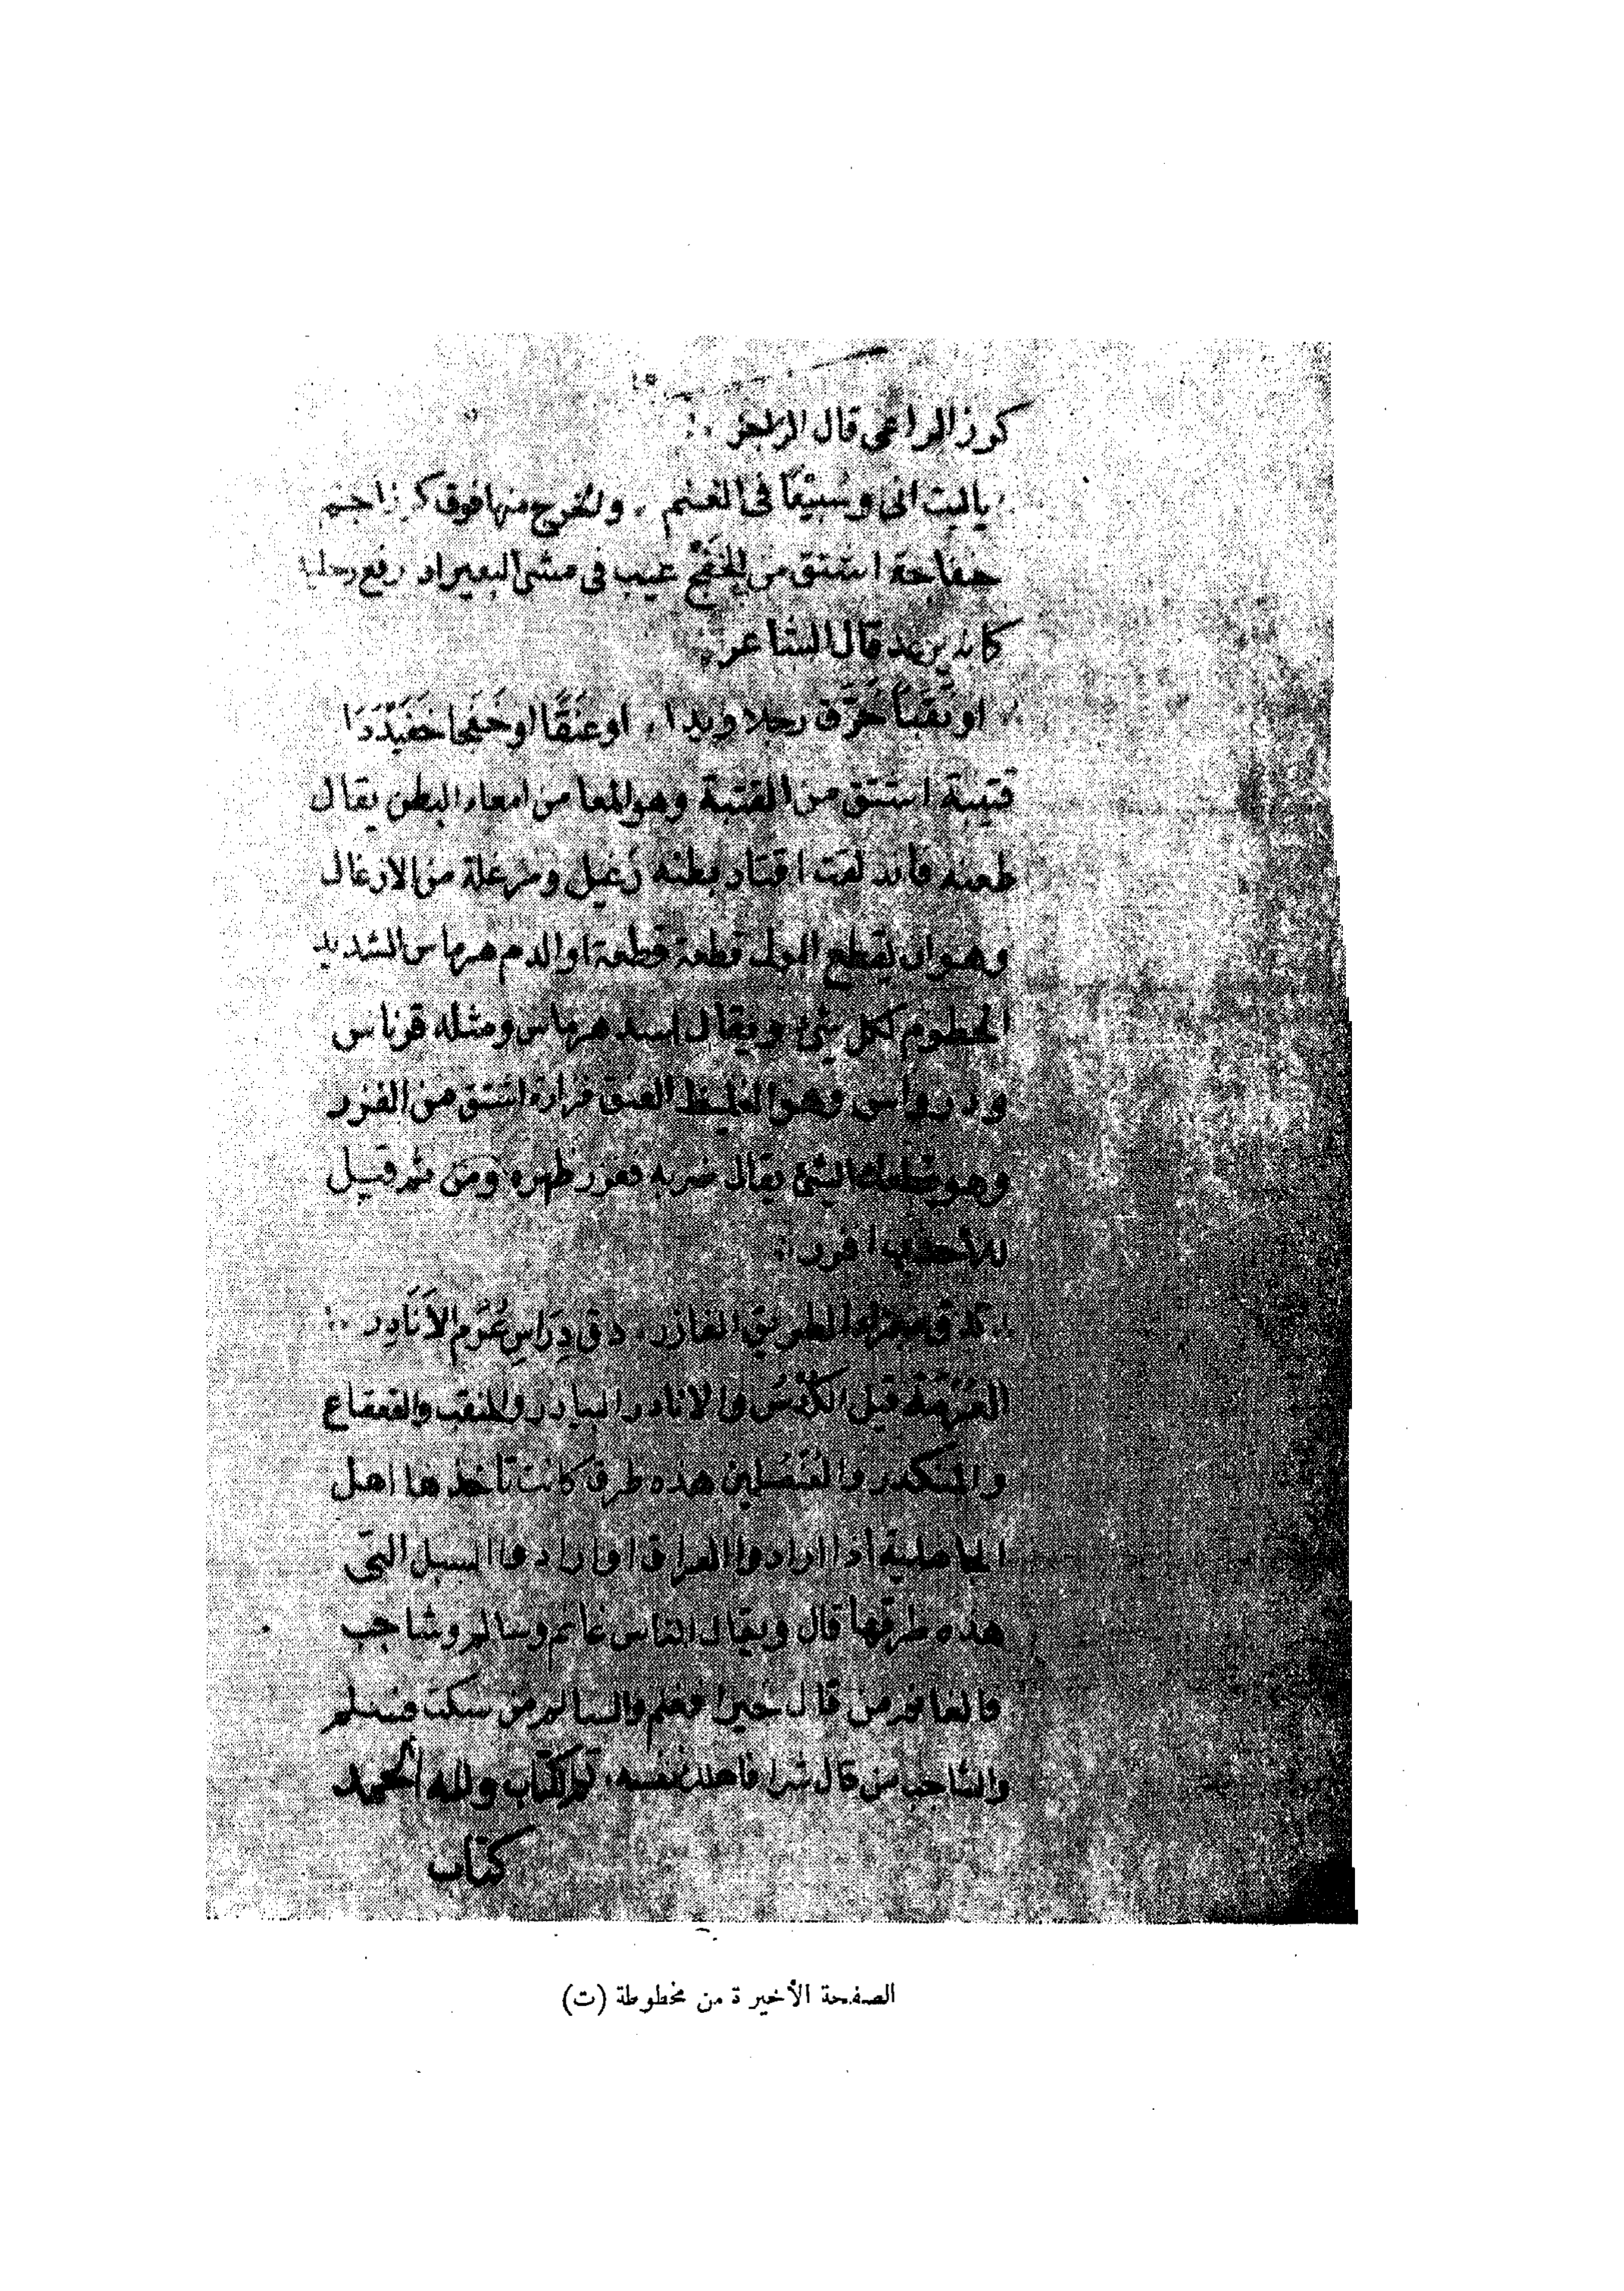 كوز الراعى قال الراجز
ياليت انى وسُبَيْعًا فى الغنم . والخرج منها فوق كراز اجم
خفاجة اشتق من الخَفَج عيب فى مشى البعير اذا رفع رجليه
كانه يرعد قال الشاعر
او نَقَبًا خَرَّق رجلا ويدا . او عنَقًا او خَفَجا خَفَيْدَدَا
قتيبة اشتق من القتبة وهو المعا من امعاء البطن يقال
طعنه فاندلقت اقتاب بطنه زغيل ومزغلة من الازغال
وهو ان يقطع البول قطعة قطعة او الدم هرماس الشديد
الحطوم لكل شئ ويقال اسد هرماس ومثله قرناس
ودرواس وهو الغليظ العنق فزارة اشتق من الفزر
وهو قطعك الشئ يقال ضربه ففزر ظهره ومن ثم قيل
للأحدب افزر
الطريق الفازر . دق دِرَاسٍ عُرَمَ الأَنَادِر
العُرْمَة قبل الكُدْس والانادر البيادر والمنقب والقعقاع
والمنكدر والعنصلين هذه طرق كانت تأخذها اهل
الجاهلية اذا ارادوا العراق او ارادوا السبل التى
هذه طرقها قال ويقال الناس غانم وسالم وشاجب
فالغانم من قال خيرا فغنم والسالم من سكت فسلم
والشاجب من قال شرا فاهلك نفسه . تم الكتاب ولله الحمد
كتاب
الصفحة الأخيرة من مخطوطة (ت)